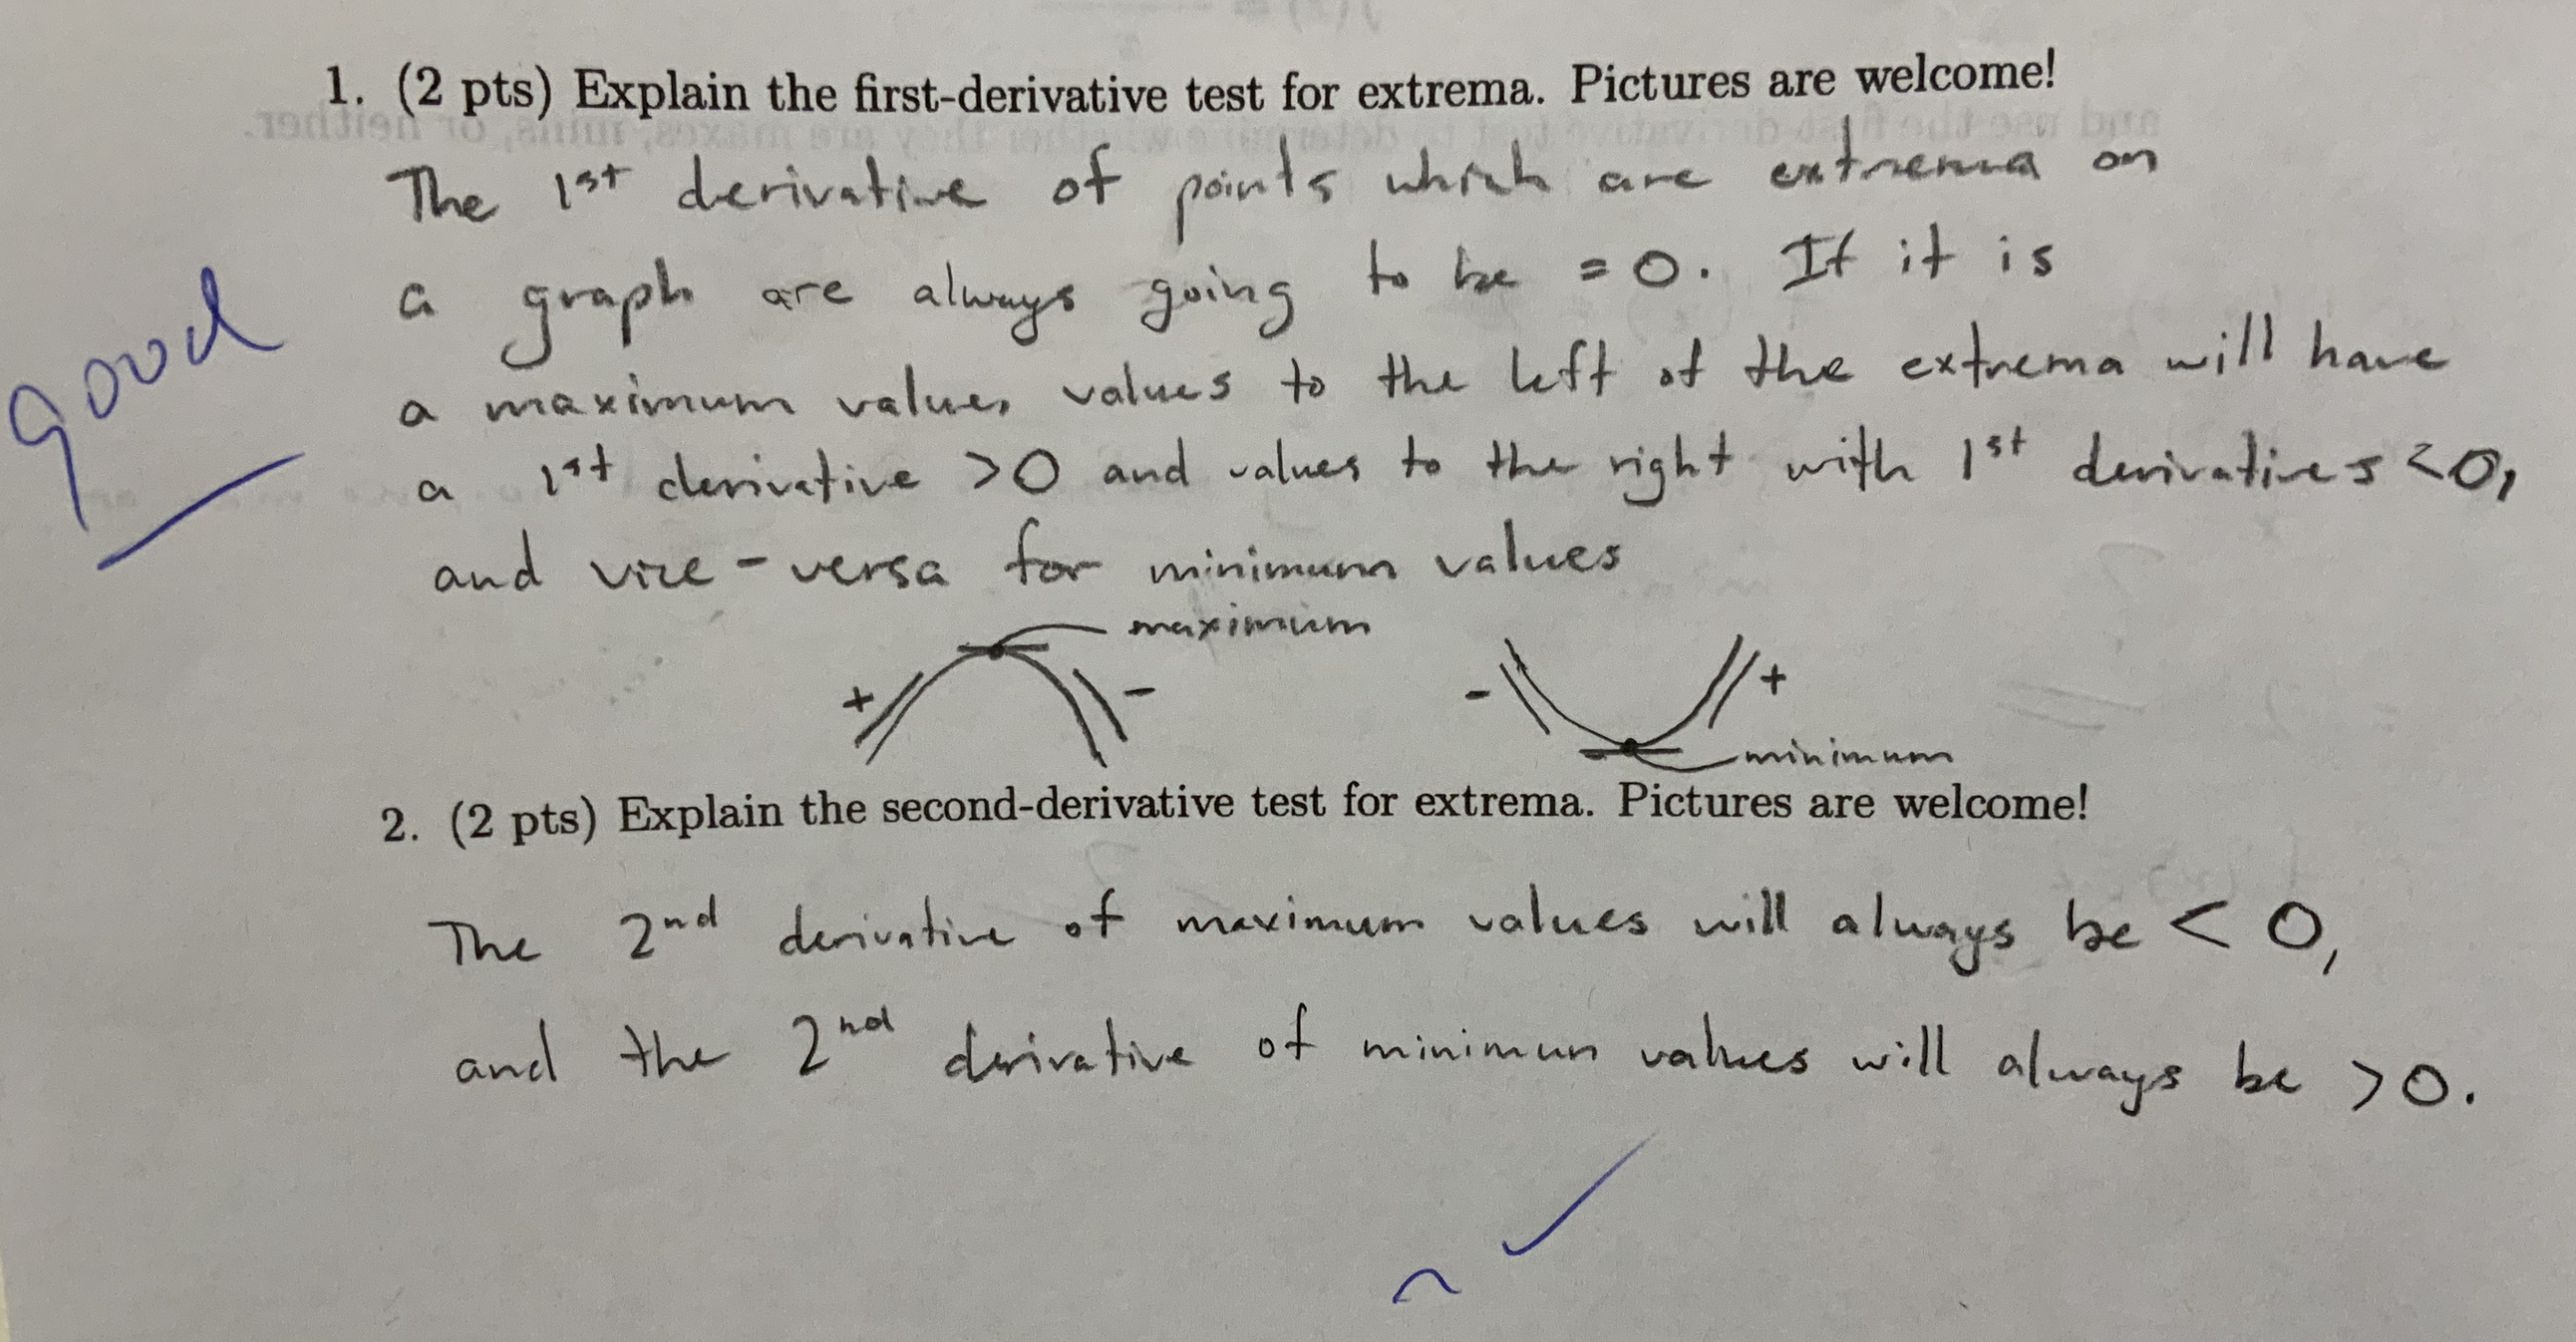 1. (2 pts) Explain the first-derivative test for extrema. Pictures are welcome!
The 1st derivative of points which are extrema on
a graph are always going to be = 0. If it is
good
a maximum value, values to the left of the extrema will have
a 1st derivative >0 and values to the right with 1st derivatives <0,
and vice-versa for minimum values
maximum
+ -
- +
minimum
2. (2 pts) Explain the second-derivative test for extrema. Pictures are welcome!
The 2nd derivative of maximum values will always be < 0,
and the 2nd derivative of minimun values will always be >0.